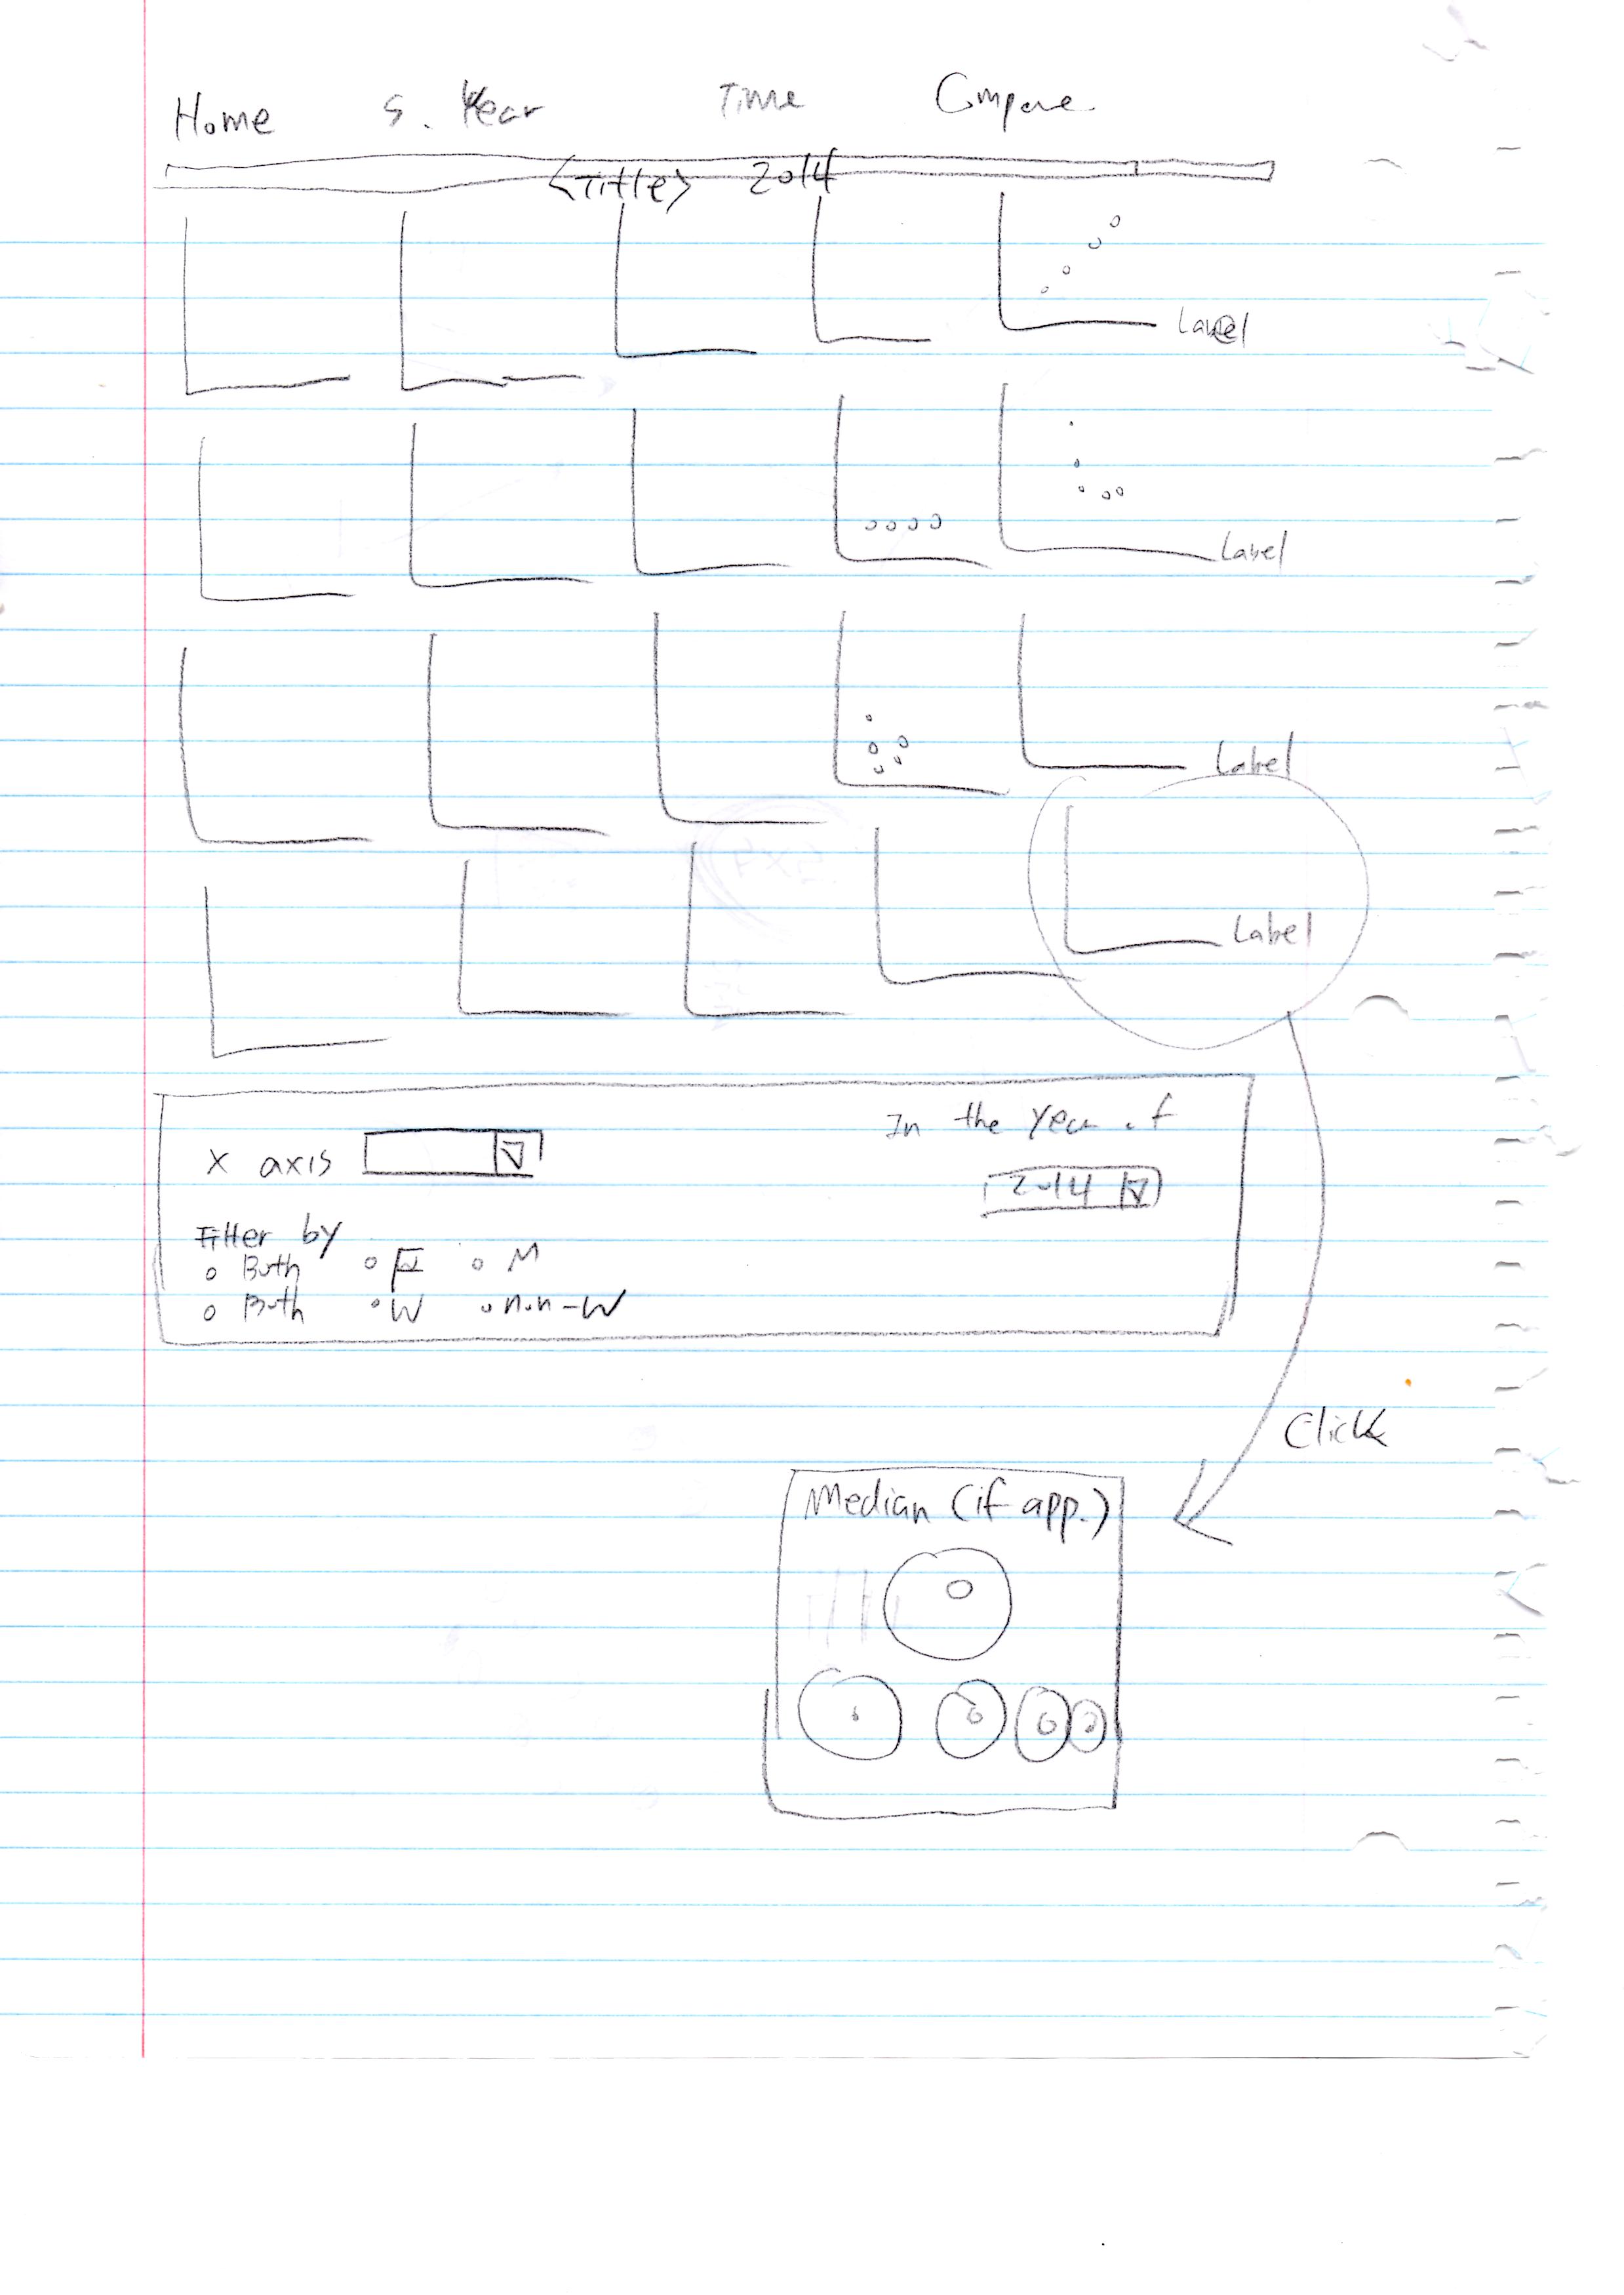 Home S. Year Time Compare
<Title> 2014
Label
Label
Label
Label
In the year of
X axis
2014
Filter by
Both F M
Both W non-W
Click
Median (if app.)